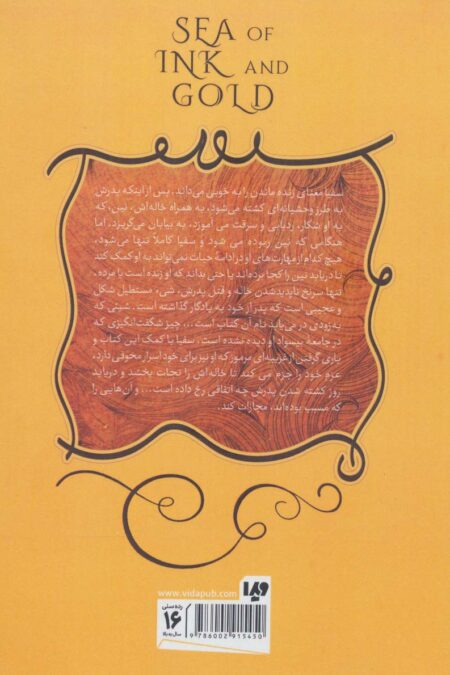 SEA OF
INK AND
GOLD
سفیا معنای زنده ماندن را به خوبی می‌داند. پس از اینکه پدرش
به طرز وحشیانه‌ای کشته می‌شود، به همراه خاله‌اش، نین، که
به او شکار، ردیابی و سرقت می آموزد، به بیابان می‌گریزد. اما
هنگامی که نین ربوده می شود و سفیا کاملاً تنها می‌شود،
هیچ کدام از مهارت‌های او در ادامهٔ حیات نمی‌تواند به او کمک کند
تا دریابد نین را کجا برده‌اند یا حتی بداند که او زنده است یا مرده.
تنها سرنخ ناپدید شدن خاله و قتل پدرش، شیء مستطیل شکل
و عجیبی است که پدر از خود به یادگار گذاشته است. شیئی که
به زودی در می‌یابد نام آن کتاب است... چیز شگفت‌انگیزی که
در جامعه بیسواد او دیده نشده است. سفیا با کمک این کتاب و
یاری گرفتن از غریبه‌ای مرموز که او نیز برای خود اسرار مخوفی دارد،
عزم خود را جزم می کند تا خاله‌اش را نجات بخشد و دریابد
روز کشته شدن پدرش چه اتفاقی رخ داده است... و آن‌هایی را
که مسبب بوده‌اند، مجازات کند.
www.vidapub.com
ویدا
رده سنی
۱۶
سال به بالا
9 786002 915450